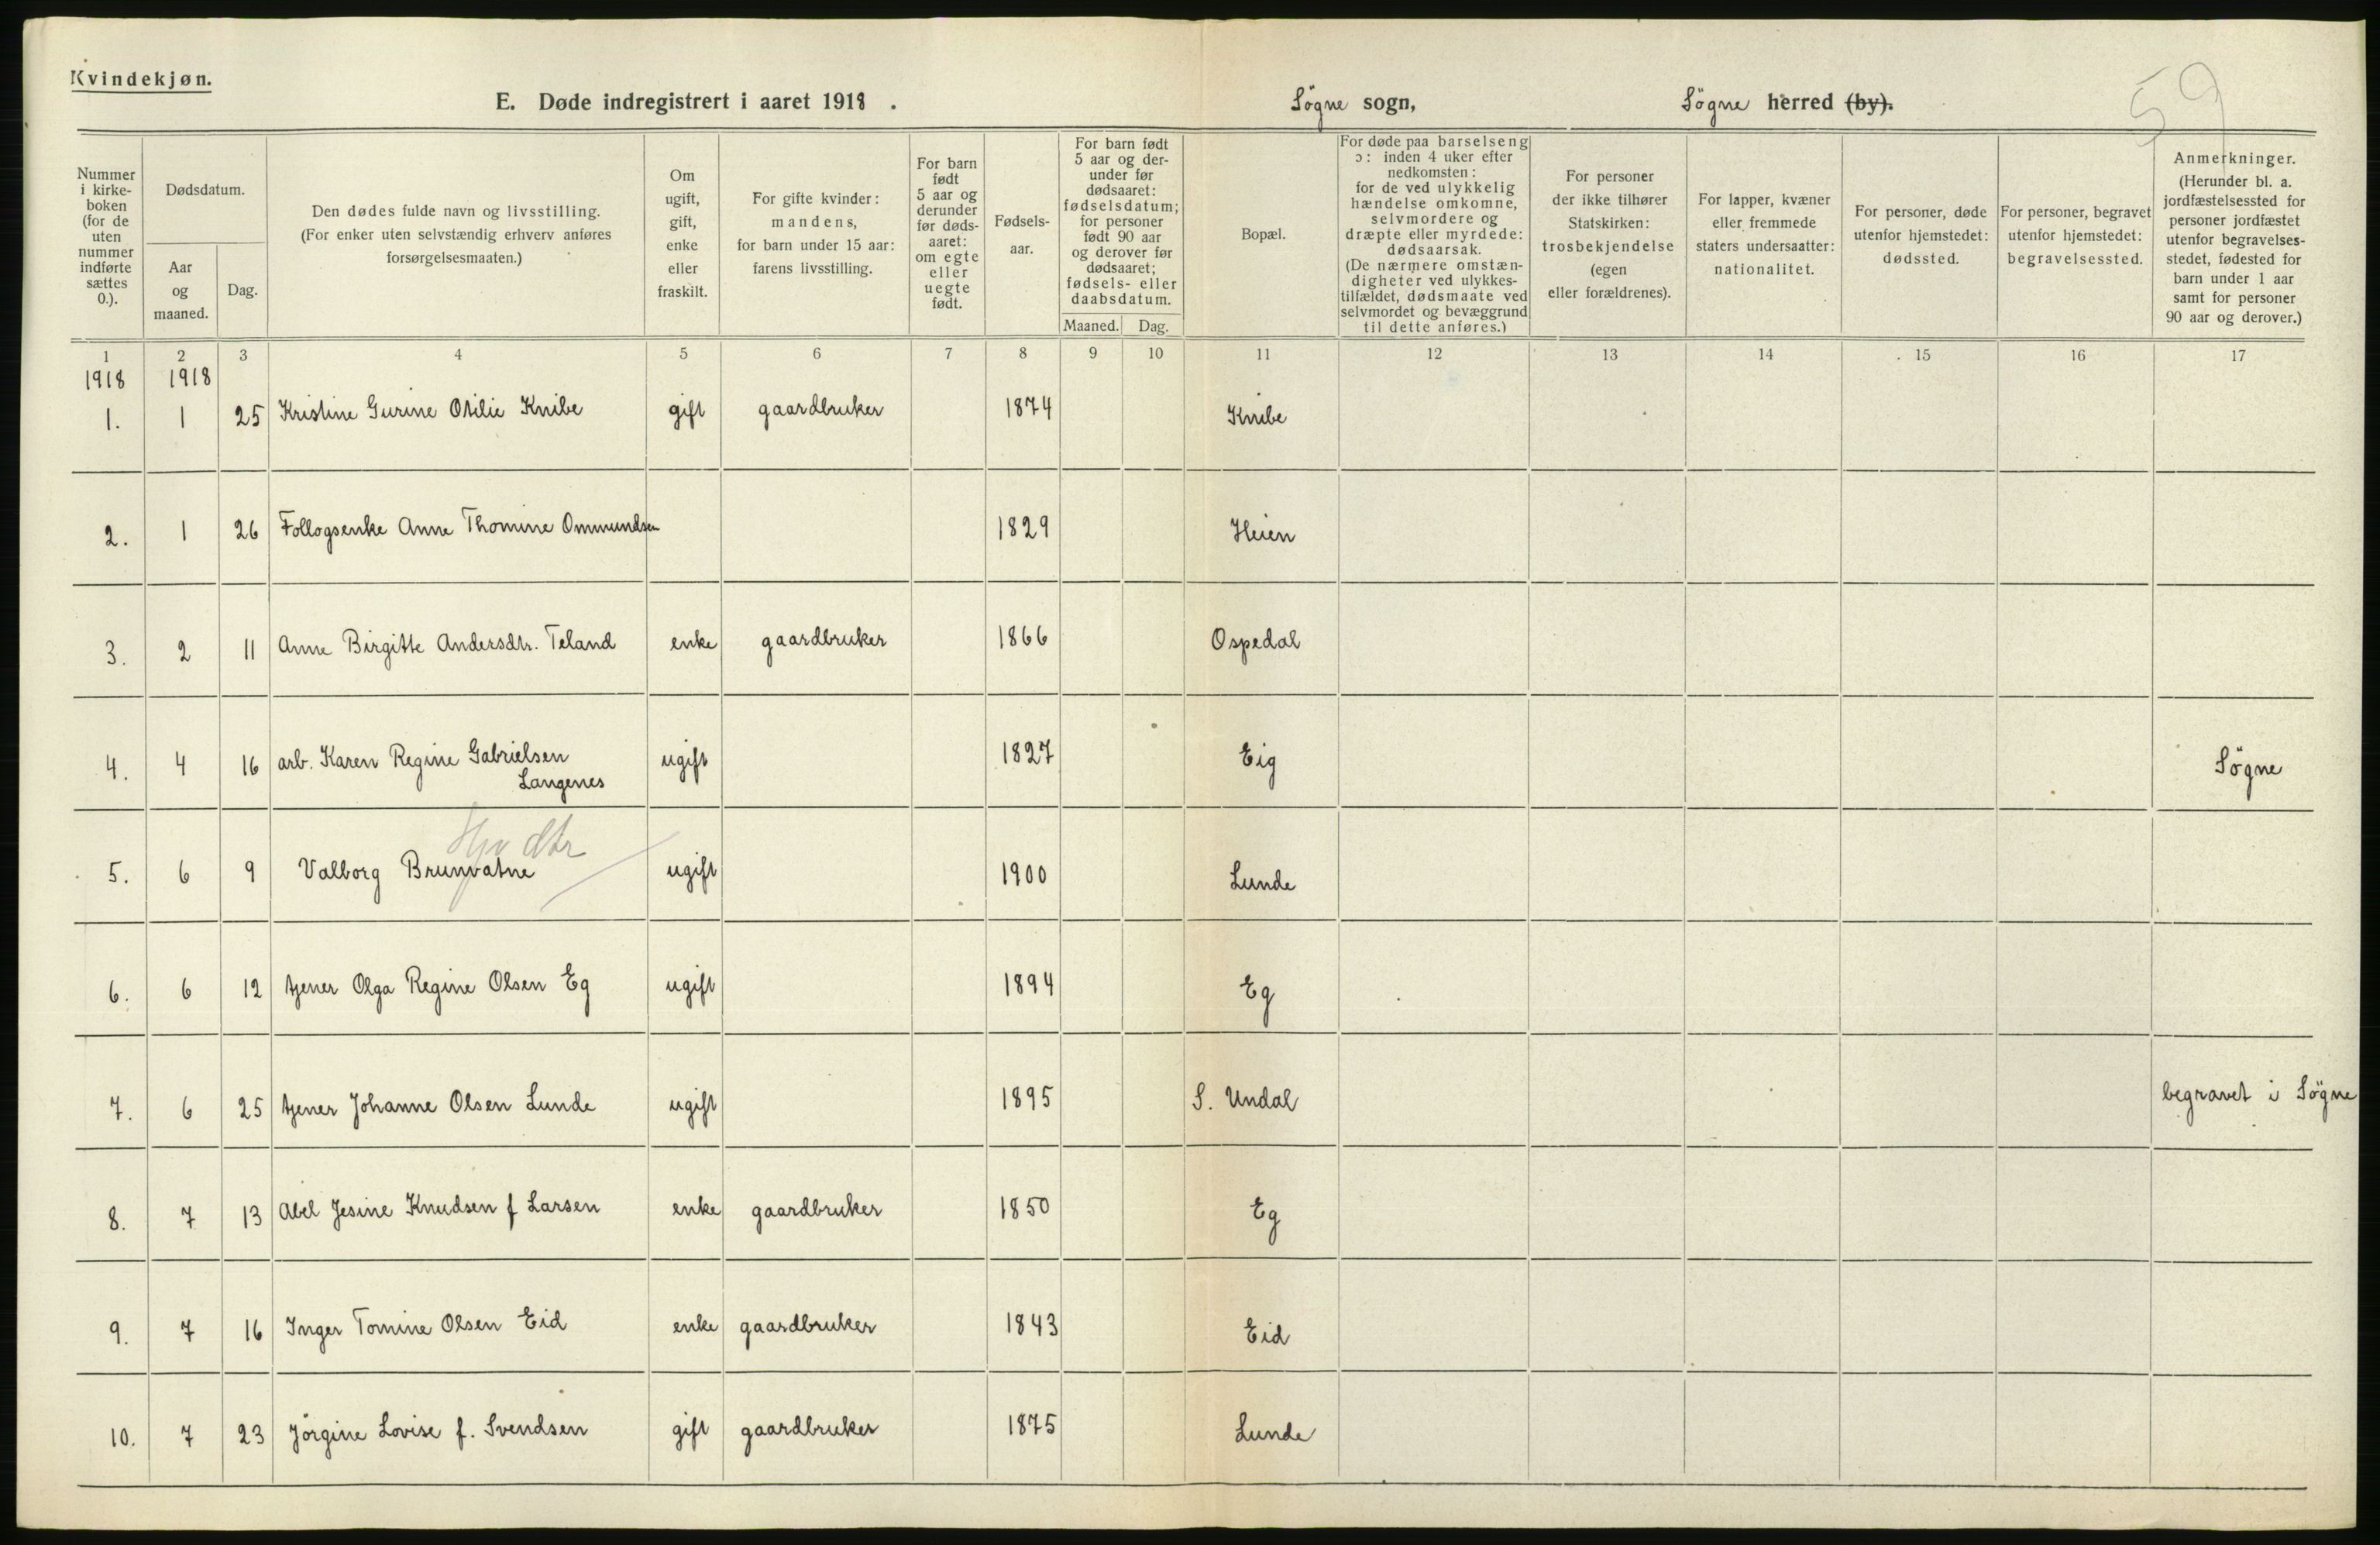 Kvindekjøn.
59
E. Døde indregistrert i aaret 1918 . Søgne sogn, Søgne herred (by).
Nummer i kirke- boken (for de uten nummer indførte sættes 0.).
Dødsdatum.
Aar og maaned.
Dag.
Den dødes fulde navn og livsstilling.
(For enker uten selvstændig erhverv anføres
forsørgelsesmaaten.)
Om ugift, gift, enke eller fraskilt.
For gifte kvinder: mandens, for barn under 15 aar: farens livsstilling.
For barn født 5 aar og derunder før døds- aaret: om egte eller uegte født.
Fødsels- aar.
For barn født 5 aar og der- under før dødsaaret: fødselsdatum; for personer født 90 aar og derover før dødsaaret; fødsels- eller daabsdatum.
Maaned. Dag.
Bopæl.
For døde paa barselseng ɔ: inden 4 uker efter nedkomsten: for de ved ulykkelig hændelse omkomne, selvmordere og dræpte eller myrdede: dødsaarsak. (De nærmere omstæn- digheter ved ulykkes- tilfældet, dødsmaate ved selvmordet og bevæggrund til dette anføres.)
For personer der ikke tilhører Statskirken: trosbekjendelse (egen eller forældrenes).
For lapper, kvæner eller fremmede staters undersaatter: nationalitet.
For personer, døde utenfor hjemstedet: dødssted.
For personer, begravet utenfor hjemstedet: begravelsessted.
Anmerkninger. (Herunder bl. a. jordfæstelsessted for personer jordfæstet utenfor begravelses- stedet, fødested for barn under 1 aar samt for personer 90 aar og derover.)
1 2 3 4 5 6 7 8 9 10 11 12 13 14 15 16 17
1918 1918
1. 1 25 Kristine Gurine Otilie Knibe gift gaardbruker 1874 Knibe
2. 1 26 Føllogsenke Anne Thomine Ommundsen 1829 Heien
3. 2 11 Anne Birgitte Andersdtr. Teland enke gaardbruker 1866 Ospedal
4. 4 16 arb. Karen Regine Gabrielsen ugift 1827 Eig Søgne
Langenes
Hjv dtr
5. 6 9 Valborg Brunvatne ugift 1900 Lunde
6. 6 12 tjener Olga Regine Olsen Eg ugift 1894 Eg
7. 6 25 tjener Johanne Olsen Lunde ugift 1895 S. Undal begravet i Søgne
8. 7 13 Abel Jesine Knudsen f Larsen enke gaardbruker 1850 Eg
9. 7 16 Inger Tomine Olsen Eid enke gaardbruker 1843 Eid
10. 7 23 Jørgine Lovise f. Svendsen gift gaardbruker 1875 Lunde